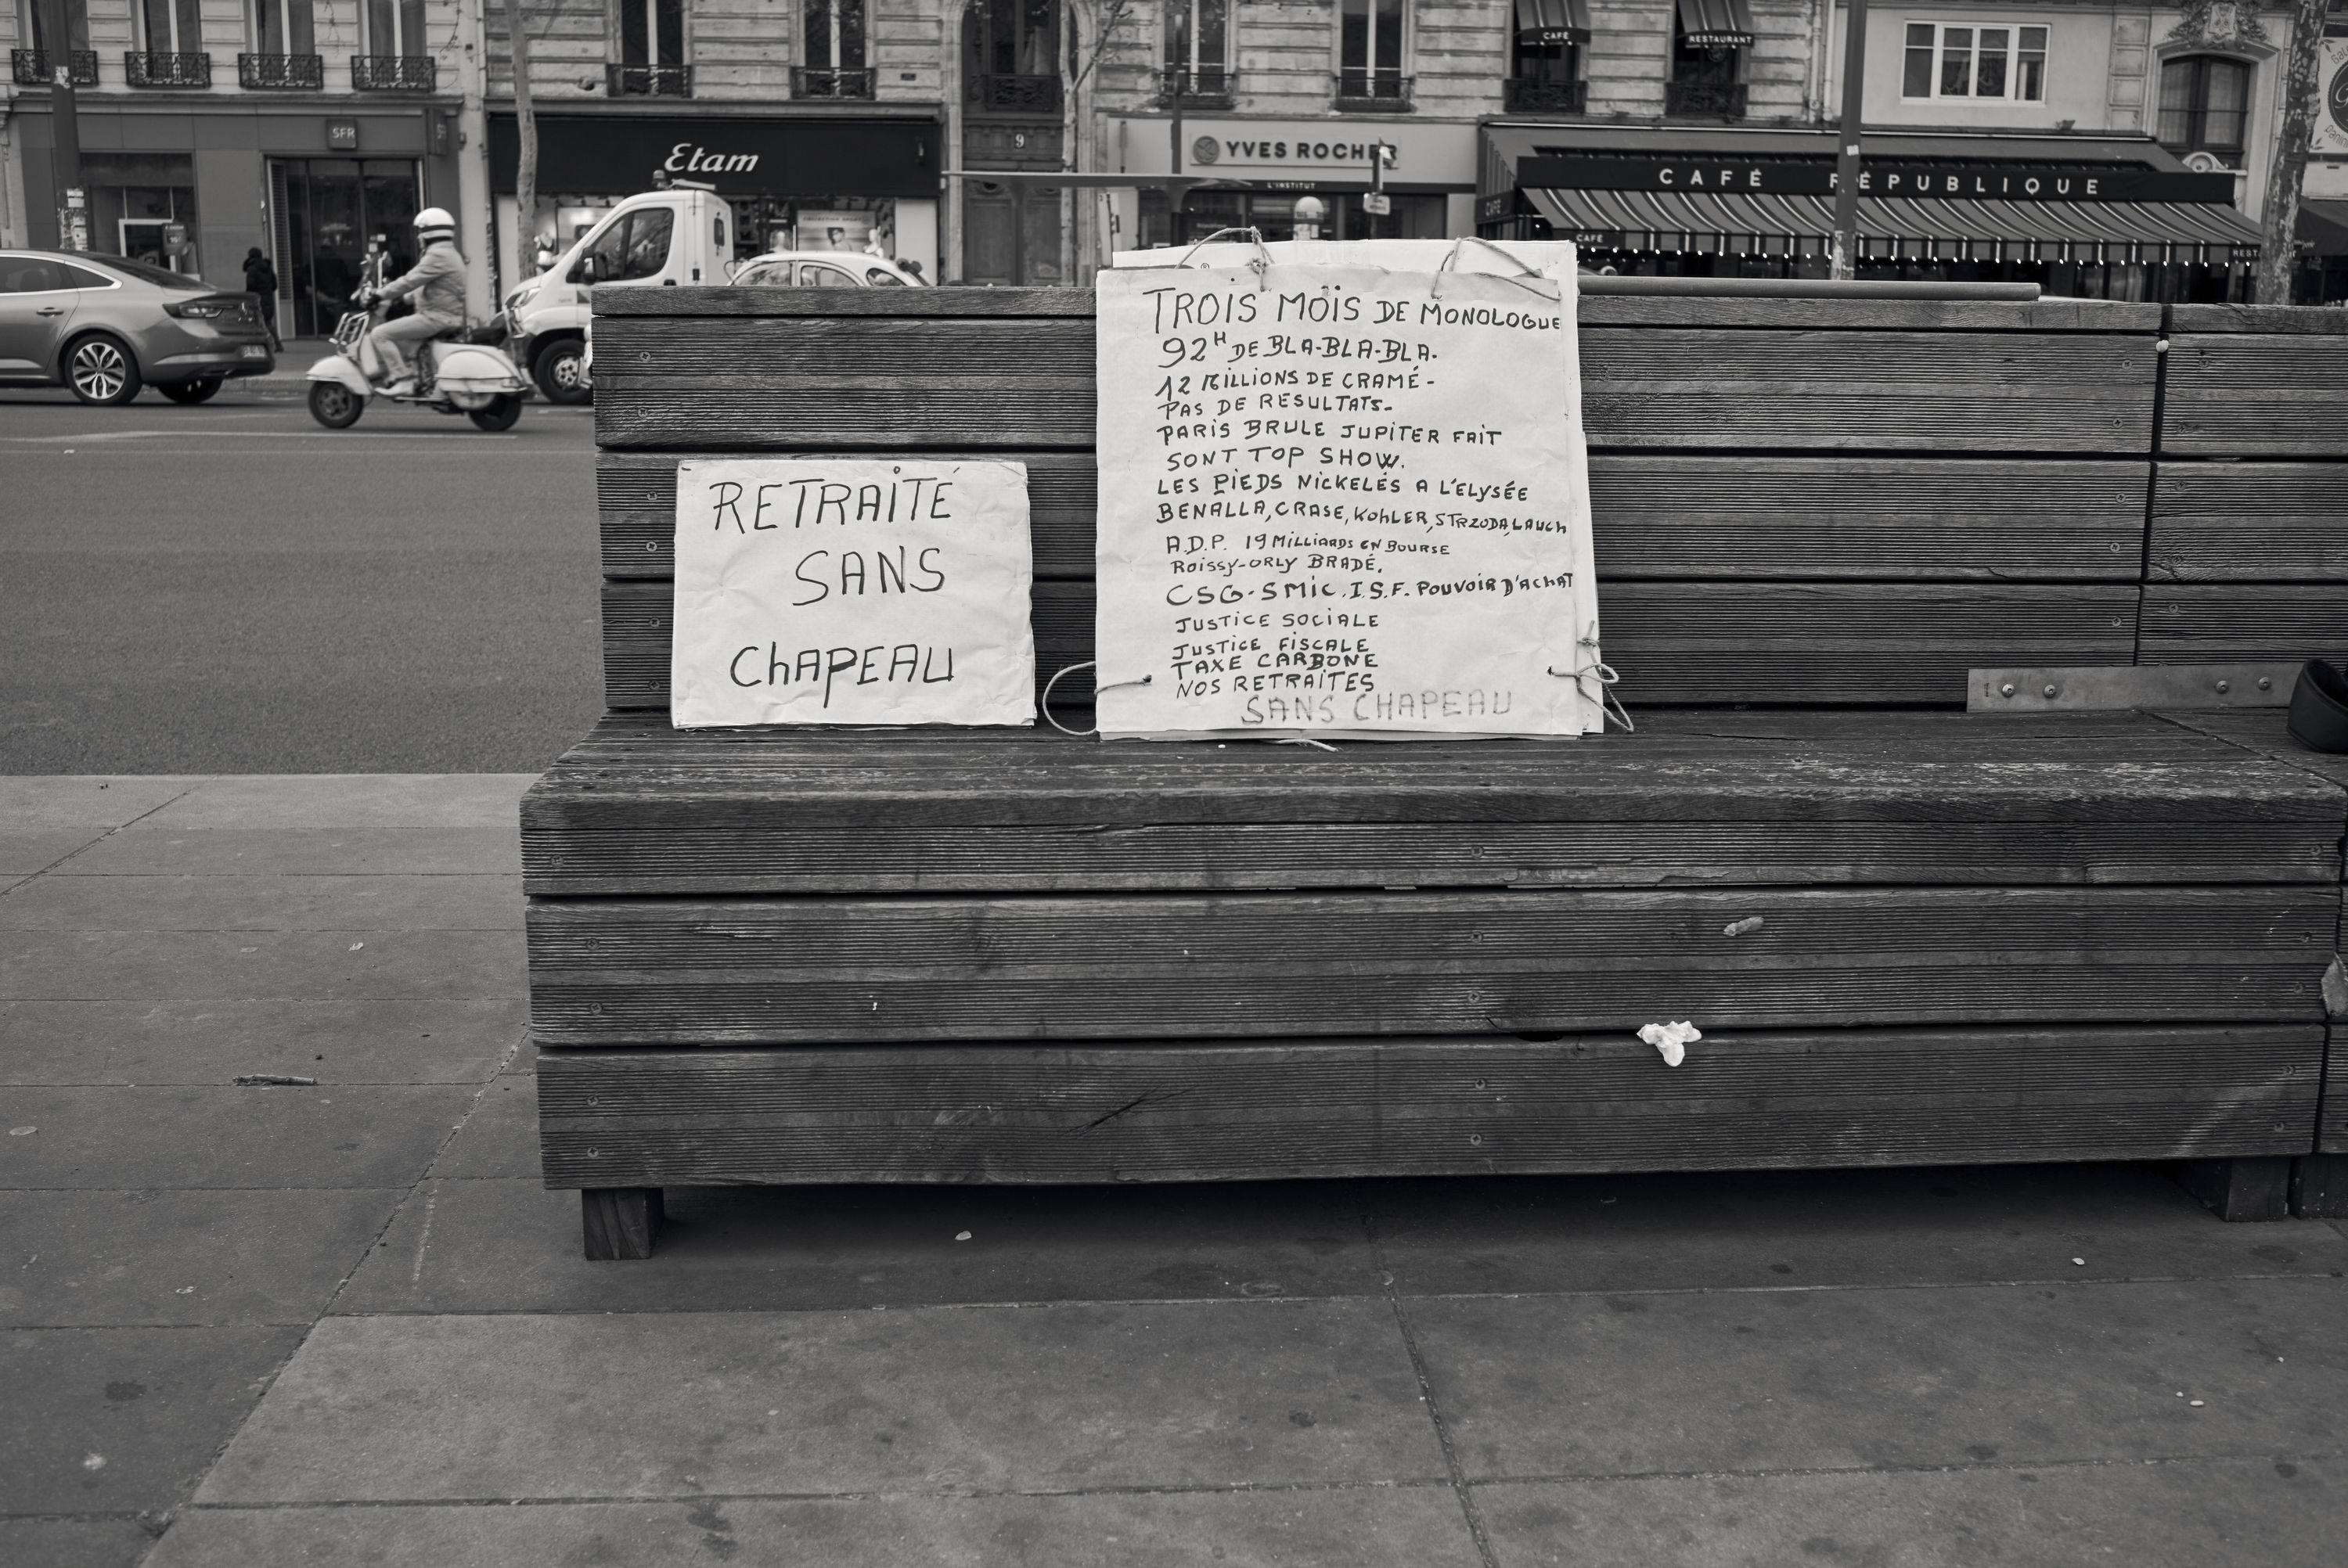 SFR
Etam
9
YVES ROCHER
L'INSTITUT
CAFÉ
RESTAURANT
CAFÉ RÉPUBLIQUE
CAFÉ
CAFÉ
RETRAITÉ
SANS
ChAPEAU
TROIS MOIS DE MONOLOGUE
92H DE BLA-BLA-BLA.
12 MILLIONS DE CRAMÉ-
PAS DE RESULTATS-
PARIS BRULE JUPITER FAIT
SONT TOP SHOW.
LES PIEDS NICKELÉS A L'ELYSÉE
BENALLA, CRASE, KOhLER, STRZODA, LAUCh
A.D.P. 19 MILLIARDS EN BOURSE
ROISSY-ORLY BRADÉ.
CSG-SMIC. I.S.F. POUVOIR D'AChAT
JUSTICE SOCIALE
JUSTICE FISCALE
TAXE CARBONE
NOS RETRAITES
SANS CHAPEAU